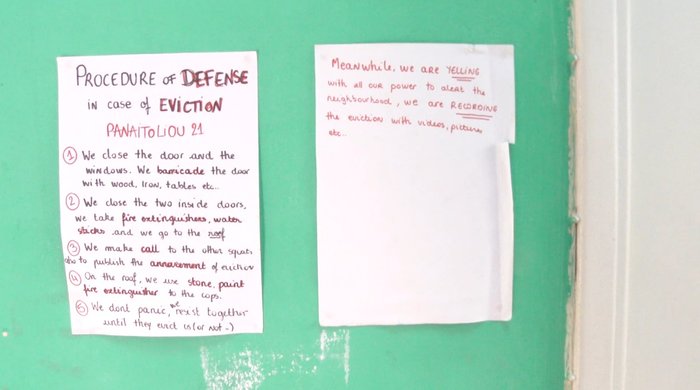 PROCEDURE OF DEFENSE
in case of EVICTION
PANAITOLIOU 21
① We close the door and the
windows. We barricade the door
with wood, Iron, tables etc..
② We close the two inside doors,
we take fire extinguishers, water
sticks and we go to the roof
③ We make call to the other squats
also to publish the annavement of eviction
④ On the roof, we use stone, paint
fire extinguisher to the cops.
⑤ We dont panic, we resist together
until they evict us (or not -)
Meanwhile, we are YELLING
with all our power to alert the
neighbourhood, we are RECORDING
the eviction with videos, pictures
etc..